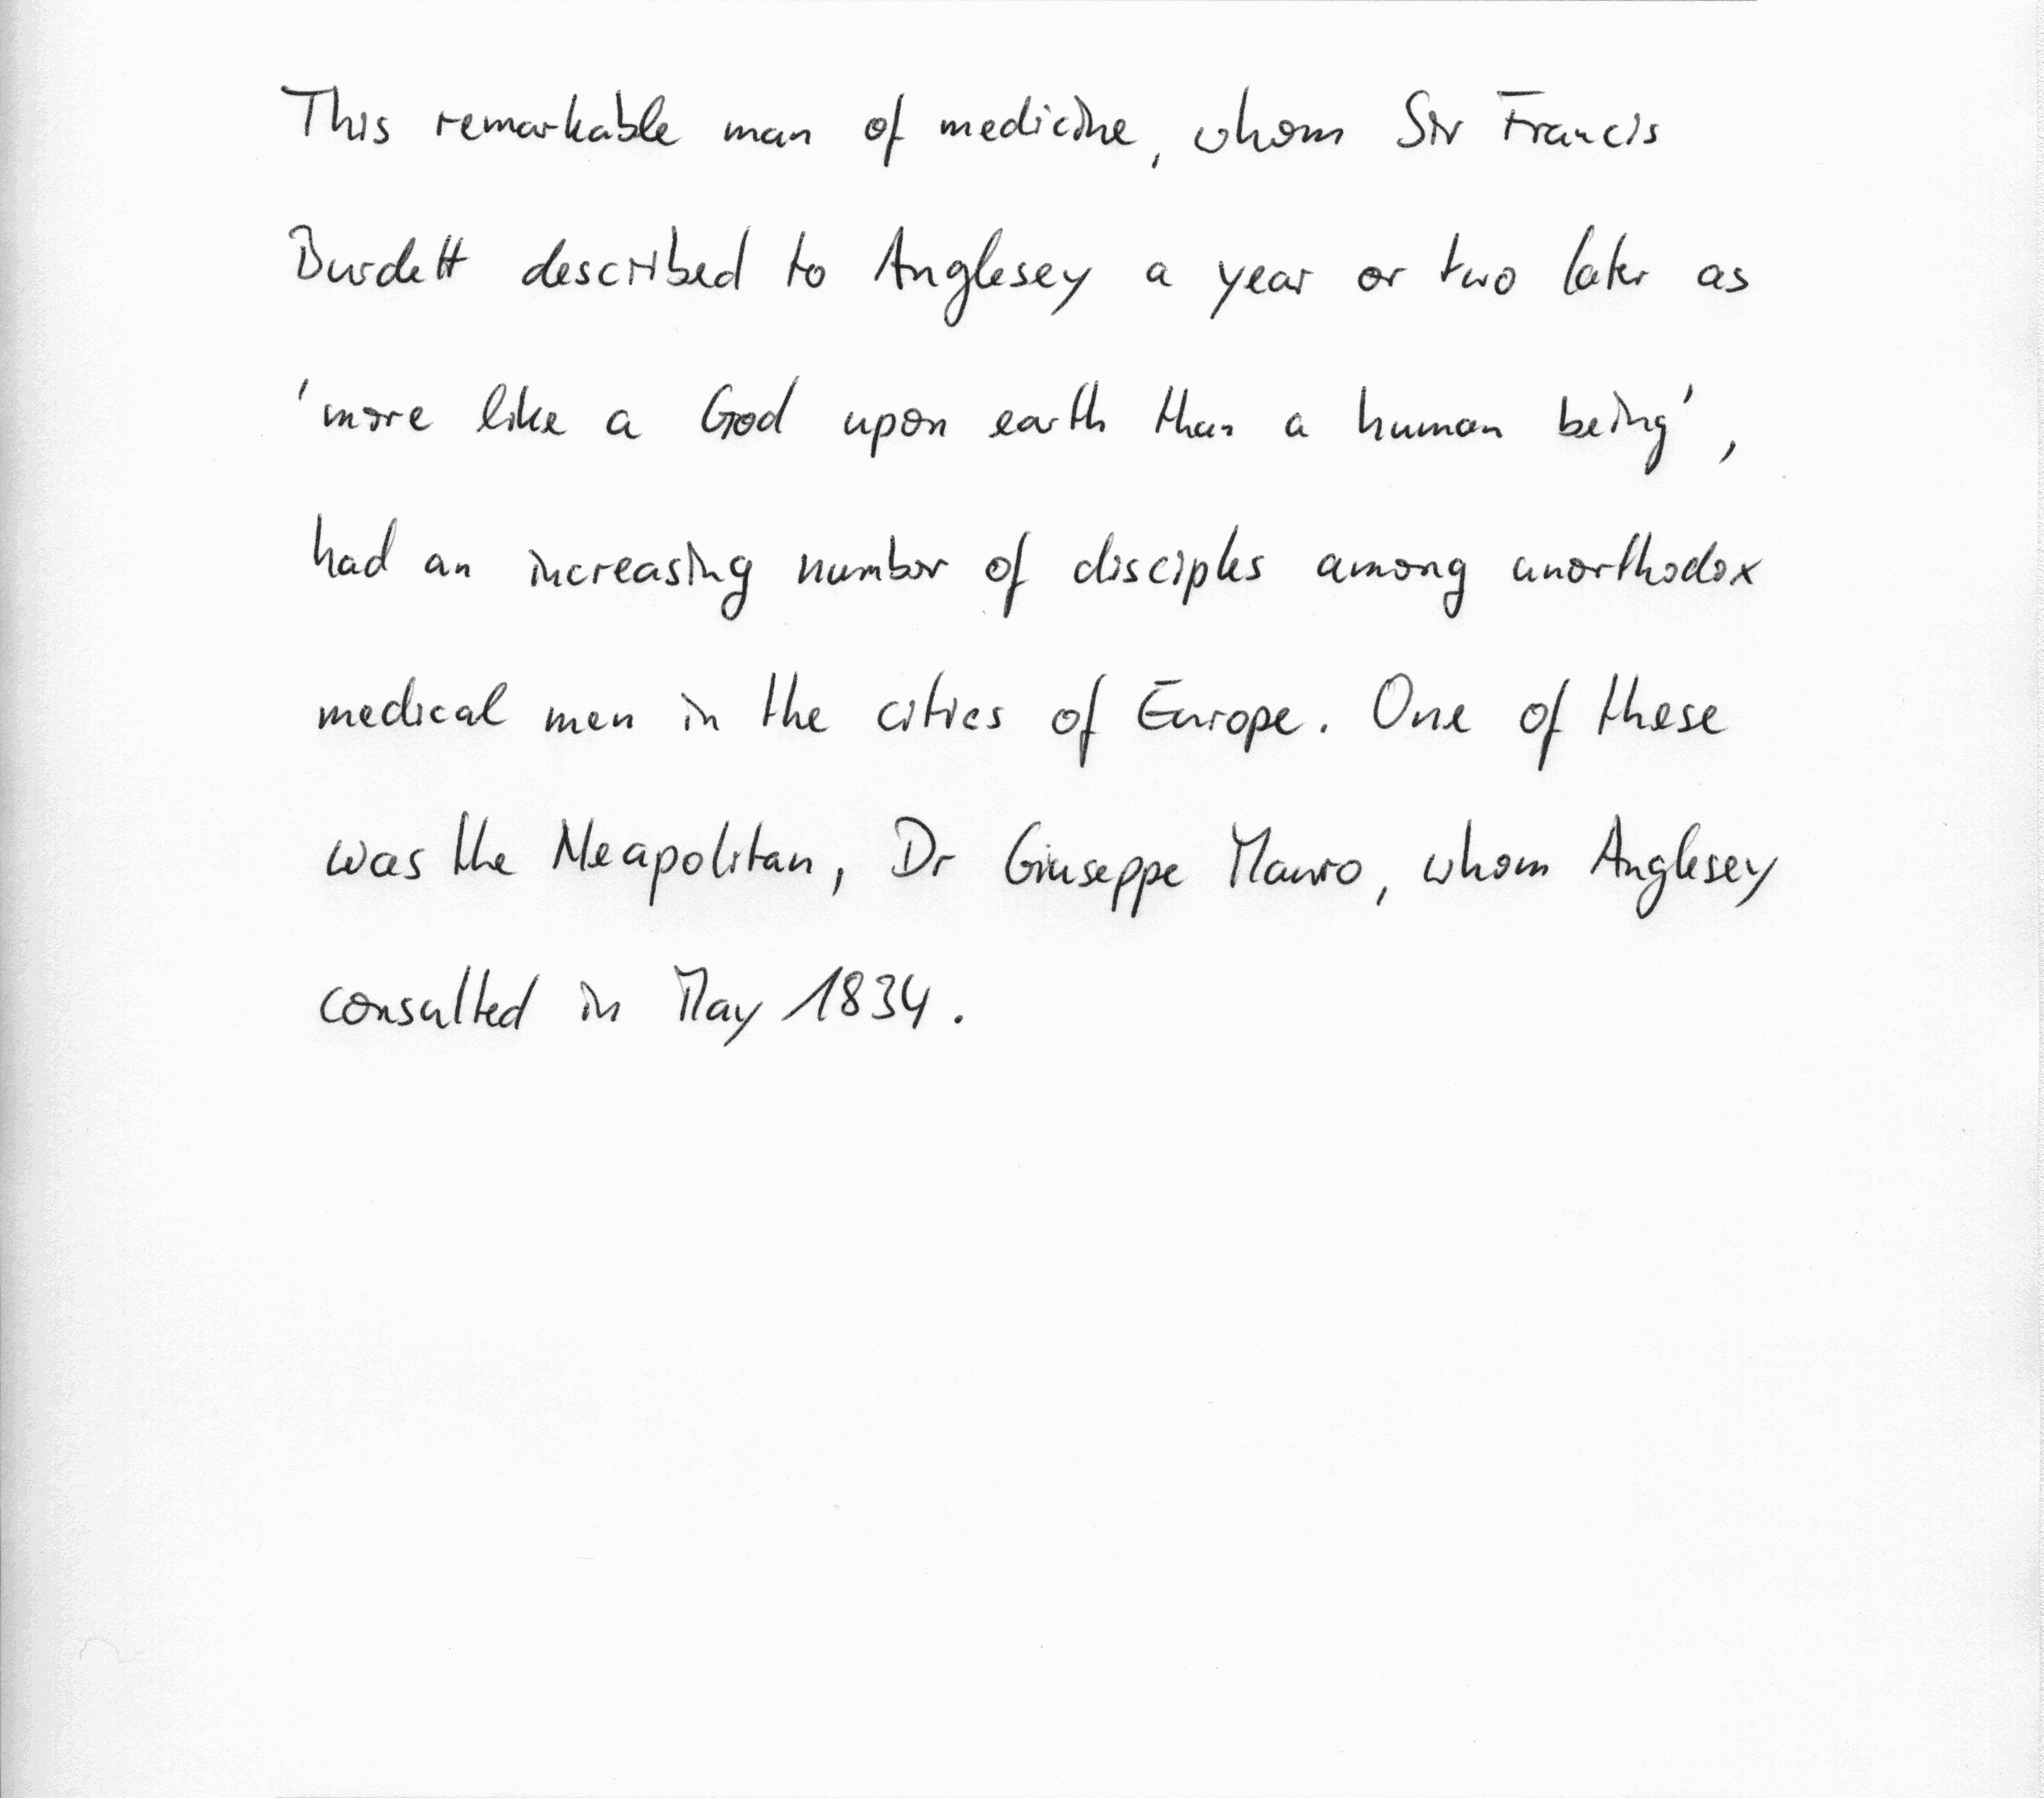 This remarkable man of medicine, whom Sir Francis
Burdett described to Anglesey a year or two later as
'more like a God upon earth than a human being',
had an increasing number of disciples among unorthodox
medical men in the cities of Europe. One of these
was the Neapolitan, Dr Giuseppe Mauro, whom Anglesey
consulted in May 1834.